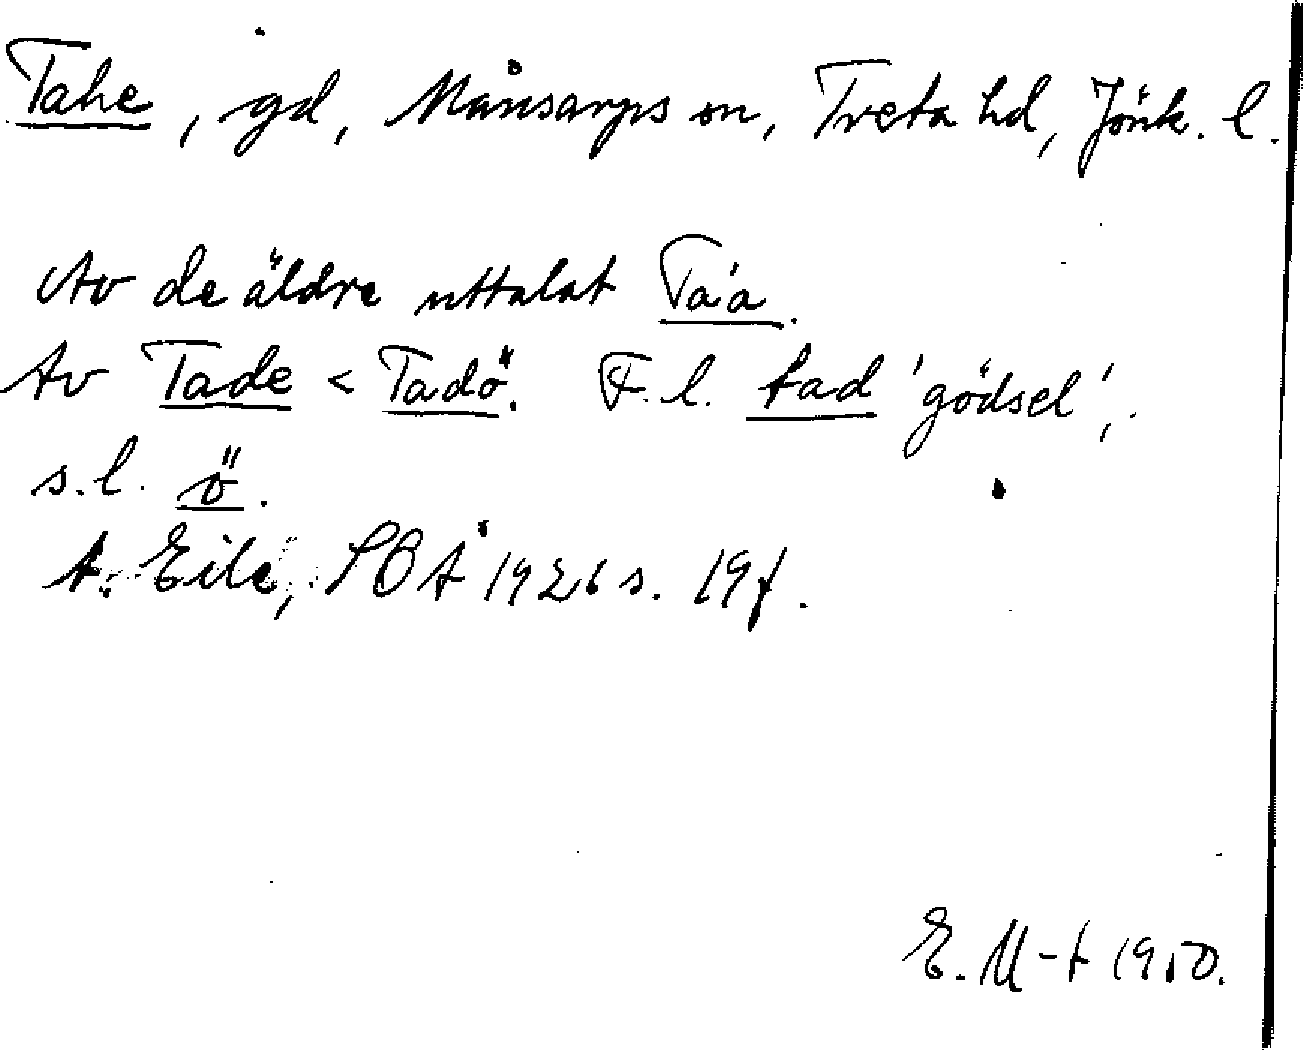 Tahe, gd, Månsarps sn, Tveta hd, Jönk. l.
Av de äldre uttalat Ta'a.
Av Tade < Tadö. F.l. tad 'gödsel',
s.l. ö.
A. Eile, SOÅ 1926 s. 19f.
E. M-t 1950.